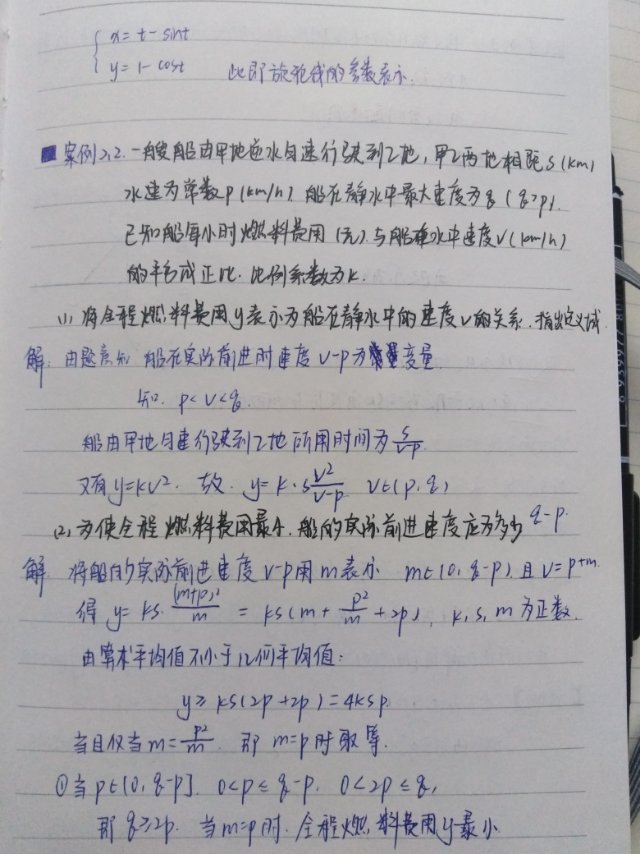 { x = t - sint
y = 1 - cost 此即旋轮线的参数表示.
案例2.2. 一艘船由甲地逆水匀速行驶到乙地, 甲乙两地相距 S (km)
水速为常数 p (km/h) 船在静水中最大速度为 q (q>p).
已知船每小时燃料费用 (元) 与船在静水中速度 V (km/h)
的平方成正比. 比例系数为 k.
(1) 将全程燃料费用 y 表示为船在静水中的速度 v 的关系. 指出定义域
解: 由题意知 船在实际前进时速度 v-p 为变量.
知. p < v < q.
船由甲地匀速行驶到乙地所用时间为 s/(v-p)
又有 y=kv². 故. y = k·s v²/(v-p) v∈(p,q)
(2) 为使全程燃料费用最小, 船的实际前进速度应为多少 q-p.
解 将船的实际前进速度 v-p 用 m 表示 m∈(0, q-p). 且 v = p+m.
得 y = ks·(m+p)²/m = ks(m + p²/m + 2p), k, s, m 为正数.
由算术平均值不小于几何平均值:
y ≥ ks(2p+2p) = 4ksp.
当且仅当 m = p²/m. 即 m=p 时取等.
① 当 p∈(0, q-p]. 0<p≤q-p. 0<2p≤q,
即 q≥2p. 当 m=p 时. 全程燃料费用 y 最小